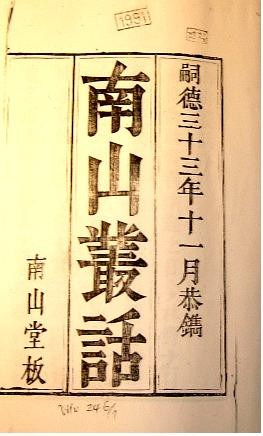 1991
嗣德三十三年十一月恭鐫
南山叢話
南山堂板